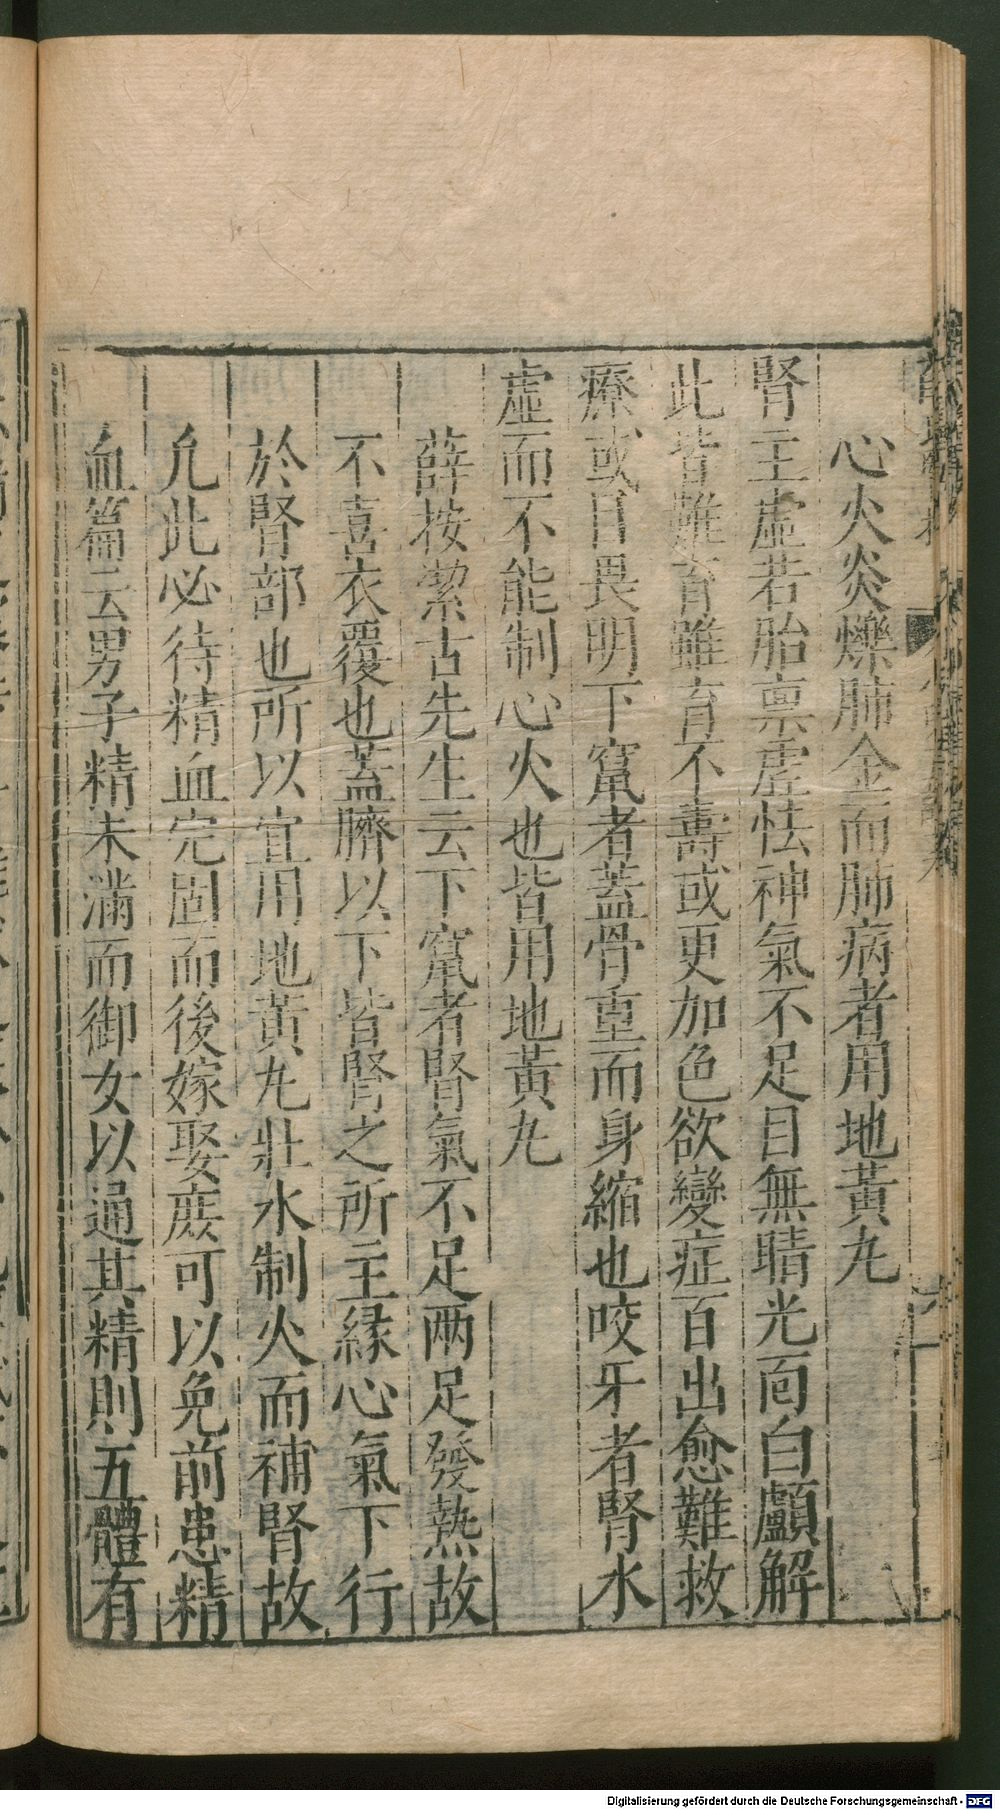 心火炎爍肺金而肺病者用地黃丸
腎主虛若胎禀虛怯神氣不足目無睛光面白顱解
此皆難育雖育不壽或更加色欲變症百出愈難救
療或目畏明下竄者蓋骨重而身縮也咬牙者腎水
虛而不能制心火也皆用地黃丸
薛按潔古先生云下竄者腎氣不足两足發熱故
不喜衣覆也蓋臍以下皆腎之所主緣心氣下行
於腎部也所以宜用地黃丸壯水制火而補腎故
凢此必待精血完固而後嫁娶庶可以免前患精
血篇云男子精未滿而御女以通其精則五體有
Digitalisierung gefördert durch die Deutsche Forschungsgemeinschaft - DFG